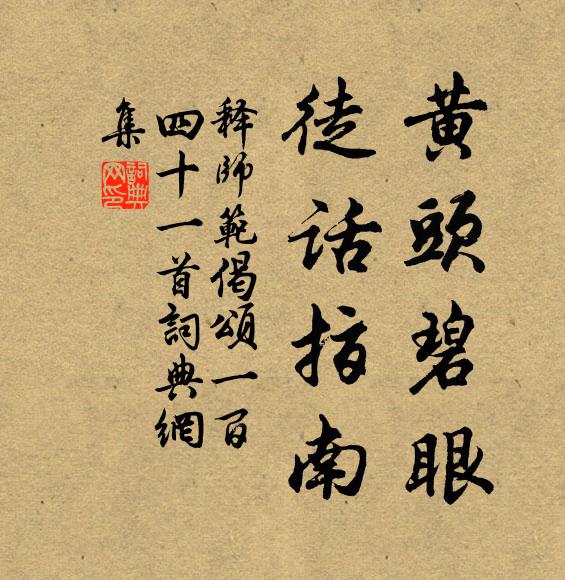 黄頭碧眼
徒話指南
釋師範偈頌一百
四十一首詞典網
集
詞典
网印